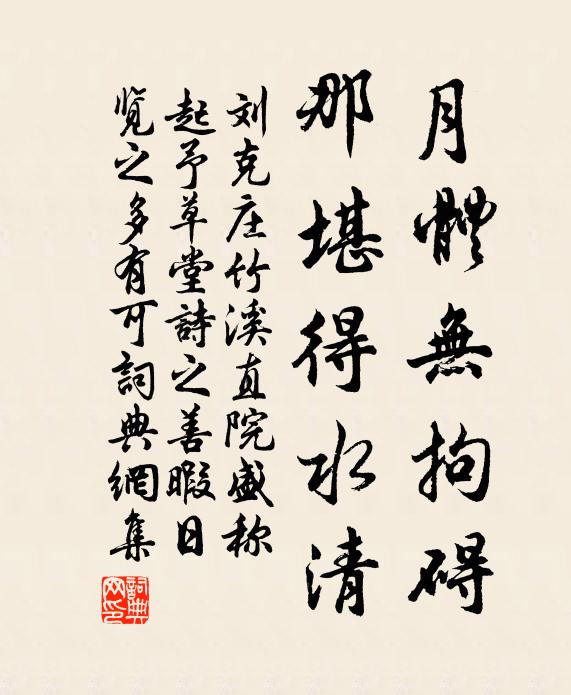 月體無拘碍
那堪得水清
刘克庄竹溪直院盛称
起予草堂詩之善暇日
览之多有可詞典網集
詞典
网印